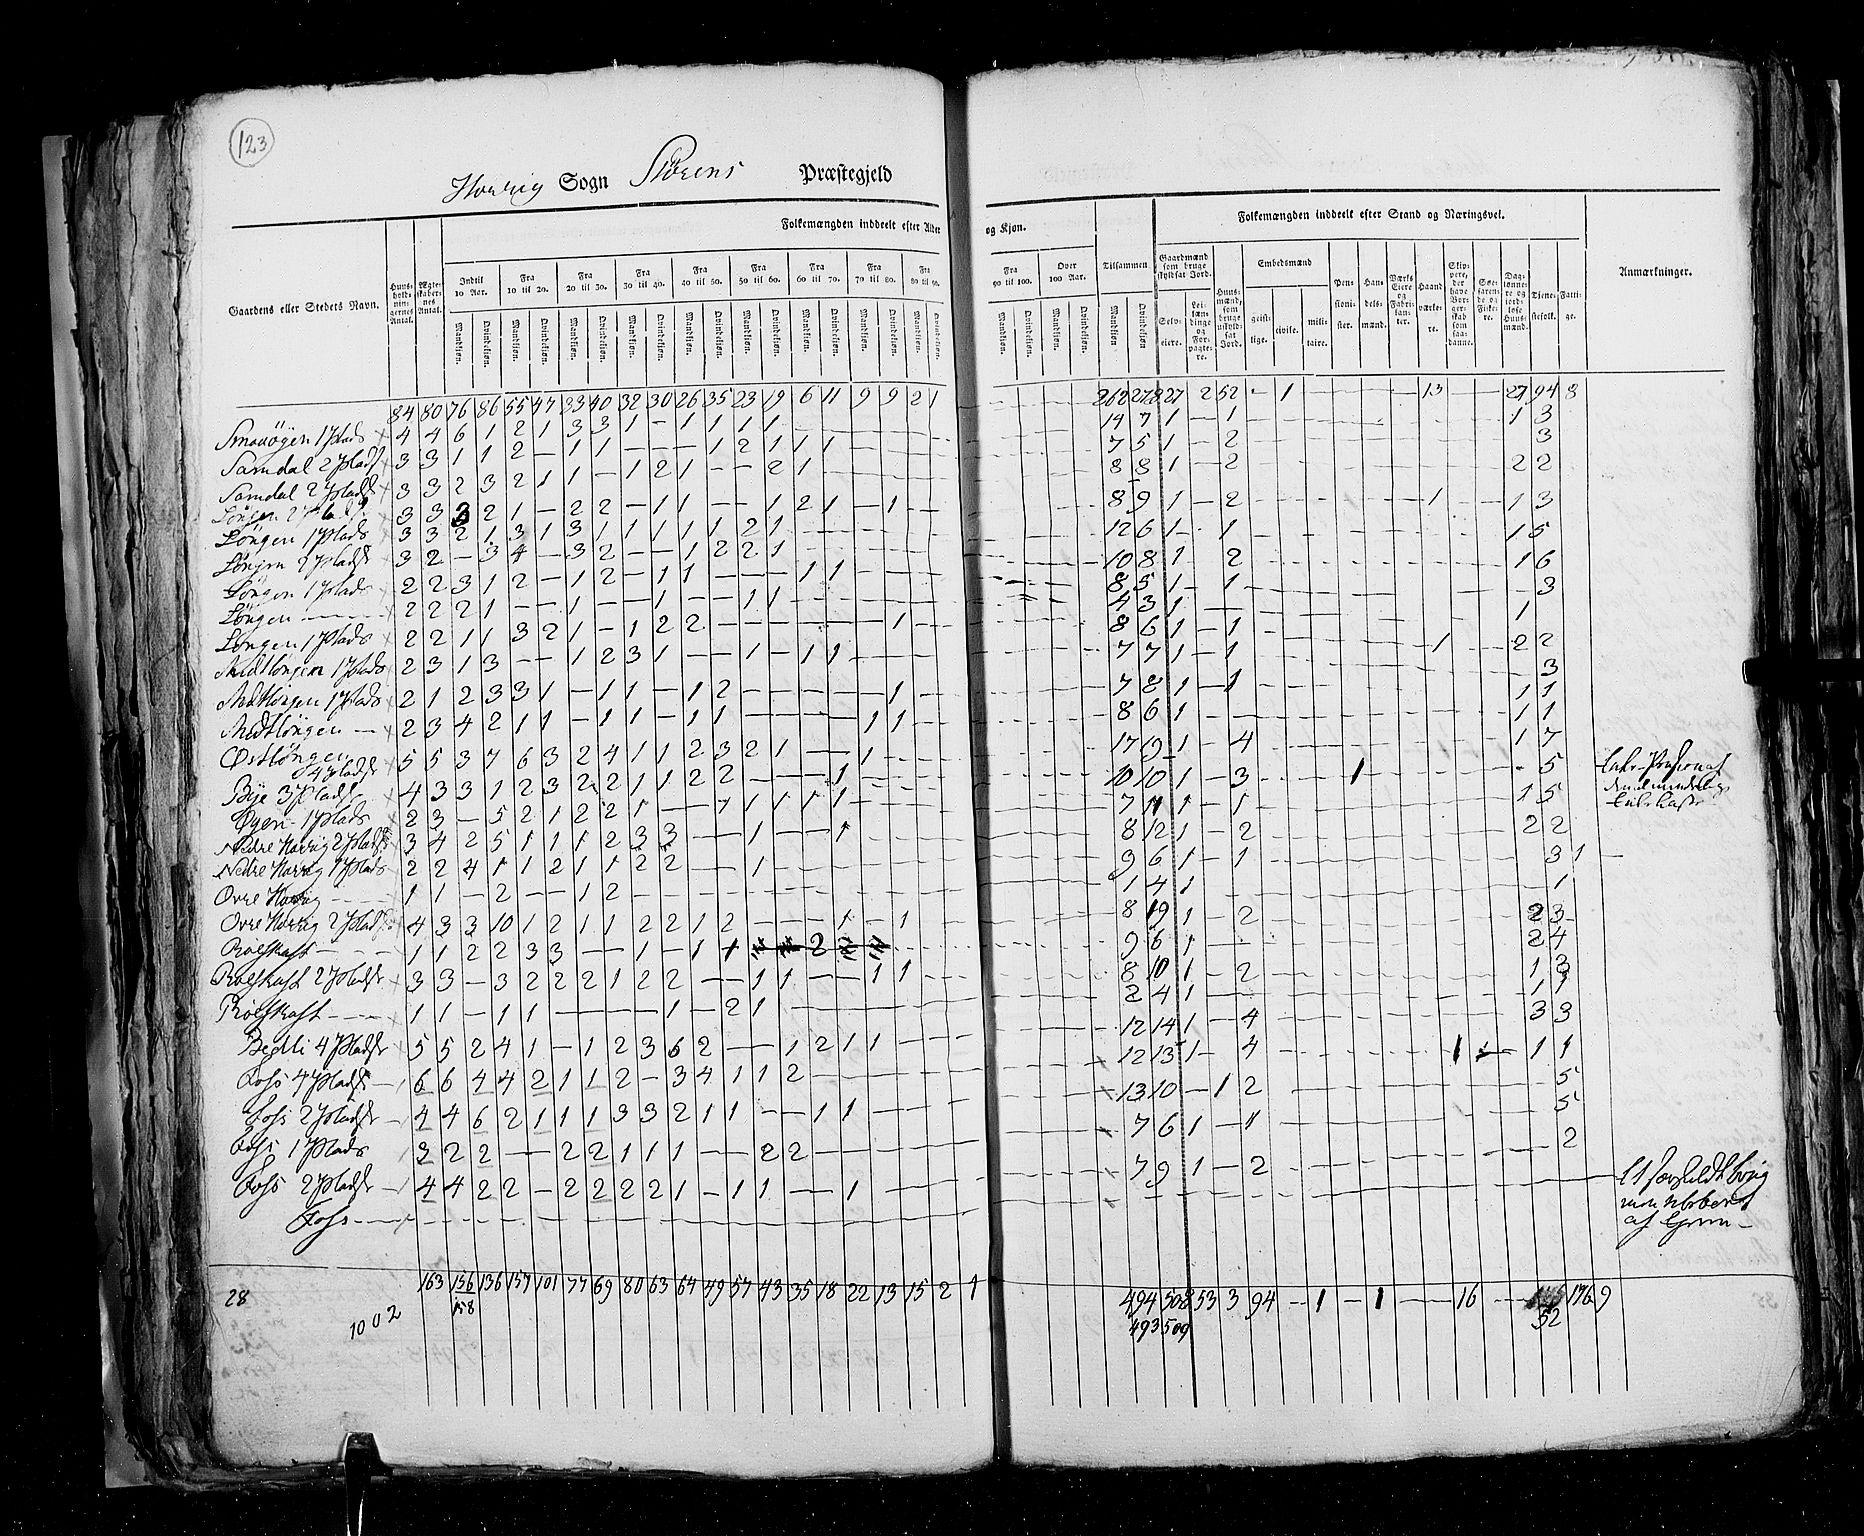 123
Sogn Störens Præstegjeld
Folkemængden inddeelt efter Alder og Kjøn.
Folkemængden inddeelt efter Stand og Næringsvei.
Gaardens eller Stedets Navn.
Huus-holdnin-gernes Antal.
Ægte-skaber-nes Antal.
Indtil 10 Aar.
Fra 10 til 20.
Fra 20 til 30.
Fra 30 til 40.
Fra 40 til 50.
Fra 50 til 60.
Fra 60 til 70.
Fra 70 til 80.
Fra 80 til 90.
Fra 90 til 100.
Over 100 Aar.
Tilsammen.
Mandkjøn. Qvindekjøn.
Gaardmænd som bruge skyldsat Jord.
Selv-eiere.
Lei-læn-dinge og For-pagte-re.
Huus-mænd, som bruge uskyld-sat Jord.
Embedsmænd
geist-lige.
civile.
mili-taire.
Pen-sioni-ster.
Han-dels-mænd.
Værks Eiere og Fabri-kan-ter.
Haand værke-re.
Skip-pere, der have Bor-ger-skab som saa-danne.
Søe-farende og Fiske-re.
Dag-lønne-re og jord-løse Huus-mænd.
Tjene-stefolk.
Fatti-ge.
Anmærkninger.
84 80 76 86 55 47 33 40 32 30 26 35 23 19 6 11 9 9 2 1 262 278 27 2 52 - 1 - 13 - 27 94 8
Samdal 2 Pladse 3 3 1 1 2 - 1 1 - - - 1 2 1 1 1 7 5 1 - 2 3
Samdal 2 Pladse 3 3 2 3 2 1 1 - 1 2 1 - - 2 1 8 8 1 - 2 2 2
Löngen 2 Pladse 3 3 3 2 1 - 2 2 - 1 1 - - 1 2 1 - 1 8 9 1 - 2 1 1 1 3
Löngen 1 Plads 3 3 2 1 3 1 3 1 1 1 1 1 2 1 12 6 1 - 1 1 5
Löngen 2 Pladse 3 2 - 3 4 - 3 2 - - 1 2 2 1 10 8 1 2 1 6
Löngen 1 Plads 2 2 3 1 2 - 1 2 - 1 1 - - - 1 1 8 5 1 - 1 3
Löngen 2 2 2 1 - - 1 - - 1 - - 1 1 4 3 1 - 1
Löngen 1 Plads 2 2 1 1 3 2 1 - 1 2 2 - 1 8 6 1 - 1 1 2 2
Midtlöngen 1 Plads 2 3 1 3 - - 1 2 3 1 - - 1 - 1 1 7 7 1 - 1 3
Midtlöngen 1 Plads 2 1 2 3 3 1 - 1 1 - 1 2 - 1 7 8 1 - 1 1 1
Midtlöngen 2 3 4 2 1 1 - 1 1 - 1 1 - 1 1 8 6 1 - 1 1
Östlöngen 4 Pladse 5 5 3 7 6 3 2 4 1 1 2 3 2 1 - 1 17 19 1 - 4 1 7
Bye 3 Pladse 4 3 3 1 2 3 2 2 1 1 2 2 - 1 10 10 1 - 3 1 5
Öyen 1 Plads 2 3 - 5 2 1 2 2 1 - - 1 1 1 1 1 7 11 1 - 1 1 5
Nedre 2 Pladse 3 4 2 5 1 1 1 2 3 3 - - 1 - - 1 8 12 1 - 2 2 2
Nedre 1 Plads 2 2 4 1 1 2 1 1 2 2 - - 1 9 6 1 - 1 3 1
Övre 1 1 - 2 - - 1 2 1 4 1 1
Övre 2 Pladse 4 3 3 10 1 2 1 1 2 2 1 2 - - - 1 - 1 8 19 1 - 2 2 3
Rolfskast 1 1 2 2 3 3 - - 1 - 1 1 2 9 6 1 2 4
Rolfskast 2 Pladse 3 3 - 3 2 2 2 1 2 2 - - 1 1 - - 1 1 8 10 1 - 2 1 3
Rolfskast 1 1 - 1 1 - - - - 1 - 2 1 2 4 1 1 1
4 Pladse 5 5 2 4 1 - 1 2 3 6 2 - - 1 2 1 1 12 14 1 - 4 3 3
Foss 4 Pladse 6 6 4 4 2 1 1 2 - 3 4 1 1 2 12 13 1 - 4 1 1 1
Foss 2 Pladse 4 4 6 2 1 1 1 3 3 2 1 1 - - 1 1 13 10 - 1 2 5
Foss 1 Plads 3 2 2 - - 2 2 1 1 1 - - 2 2 7 6 1 - 1 5
Foss 2 Pladse 4 4 2 2 - 2 2 2 2 1 - 1 1 - - 1 7 9 1 - 2 2
Foss
28
163 156 136 157 101 77 69 80 63 64 49 57 43 35 18 22 13 15 2 1 494 508 53 3 94 - 1 - 1 - 16 - 176 9
158 493 509 52
1002